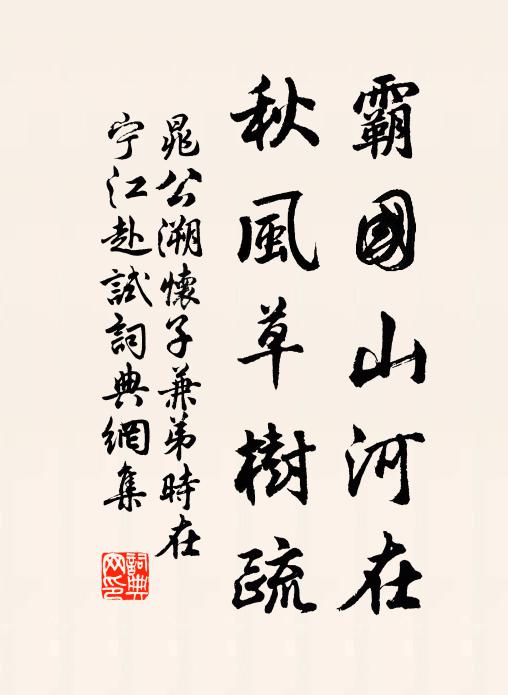 霸國山河在
秋風草樹疏
晁公溯懷子兼弟時在
宁江赴試詞典網集
詞典
网印